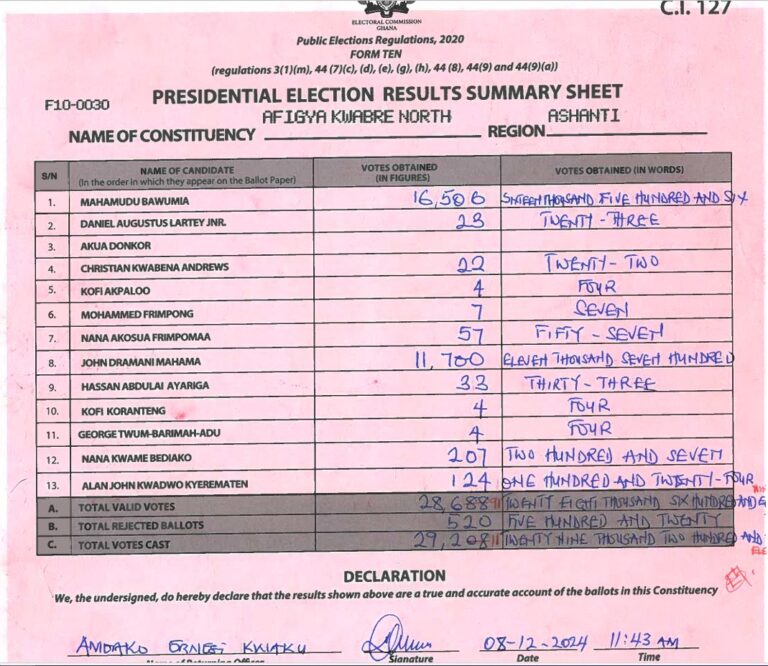 C.I. 127
ELECTORAL COMMISSION
GHANA
Public Elections Regulations, 2020
FORM TEN
(regulations 3(1)(m), 44 (7)(c), (d), (e), (g), (h), 44 (8), 44(9) and 44(9)(a))
F10-0030 PRESIDENTIAL ELECTION RESULTS SUMMARY SHEET
NAME OF CONSTITUENCY AFIGYA KWABRE NORTH REGION ASHANTI
S/N NAME OF CANDIDATE (In the order in which they appear on the Ballot Paper) VOTES OBTAINED (IN FIGURES) VOTES OBTAINED (IN WORDS)
1. MAHAMUDU BAWUMIA 16,506 SIXTEEN THOUSAND FIVE HUNDRED AND SIX
2. DANIEL AUGUSTUS LARTEY JNR. 23 TWENTY-THREE
3. AKUA DONKOR
4. CHRISTIAN KWABENA ANDREWS 22 TWENTY-TWO
5. KOFI AKPALOO 4 FOUR
6. MOHAMMED FRIMPONG 7 SEVEN
7. NANA AKOSUA FRIMPOMAA 57 FIFTY-SEVEN
8. JOHN DRAMANI MAHAMA 11,700 ELEVEN THOUSAND SEVEN HUNDRED
9. HASSAN ABDULAI AYARIGA 33 THIRTY-THREE
10. KOFI KORANTENG 4 FOUR
11. GEORGE TWUM-BARIMAH-ADU 4 FOUR
12. NANA KWAME BEDIAKO 207 TWO HUNDRED AND SEVEN
13. ALAN JOHN KWADWO KYEREMATEN 124 ONE HUNDRED AND TWENTY-FOUR
A. TOTAL VALID VOTES 28,688 91 TWENTY EIGHT THOUSAND SIX HUNDRED AND
B. TOTAL REJECTED BALLOTS 520 FIVE HUNDRED AND TWENTY
C. TOTAL VOTES CAST 29,208 11 TWENTY NINE THOUSAND TWO HUNDRED AND
DECLARATION
We, the undersigned, do hereby declare that the results shown above are a true and accurate account of the ballots in this Constituency
AMOAKO ERNEST KWAKU 08-12-2024 11:43 AM
Name of Returning Officer Signature Date Time